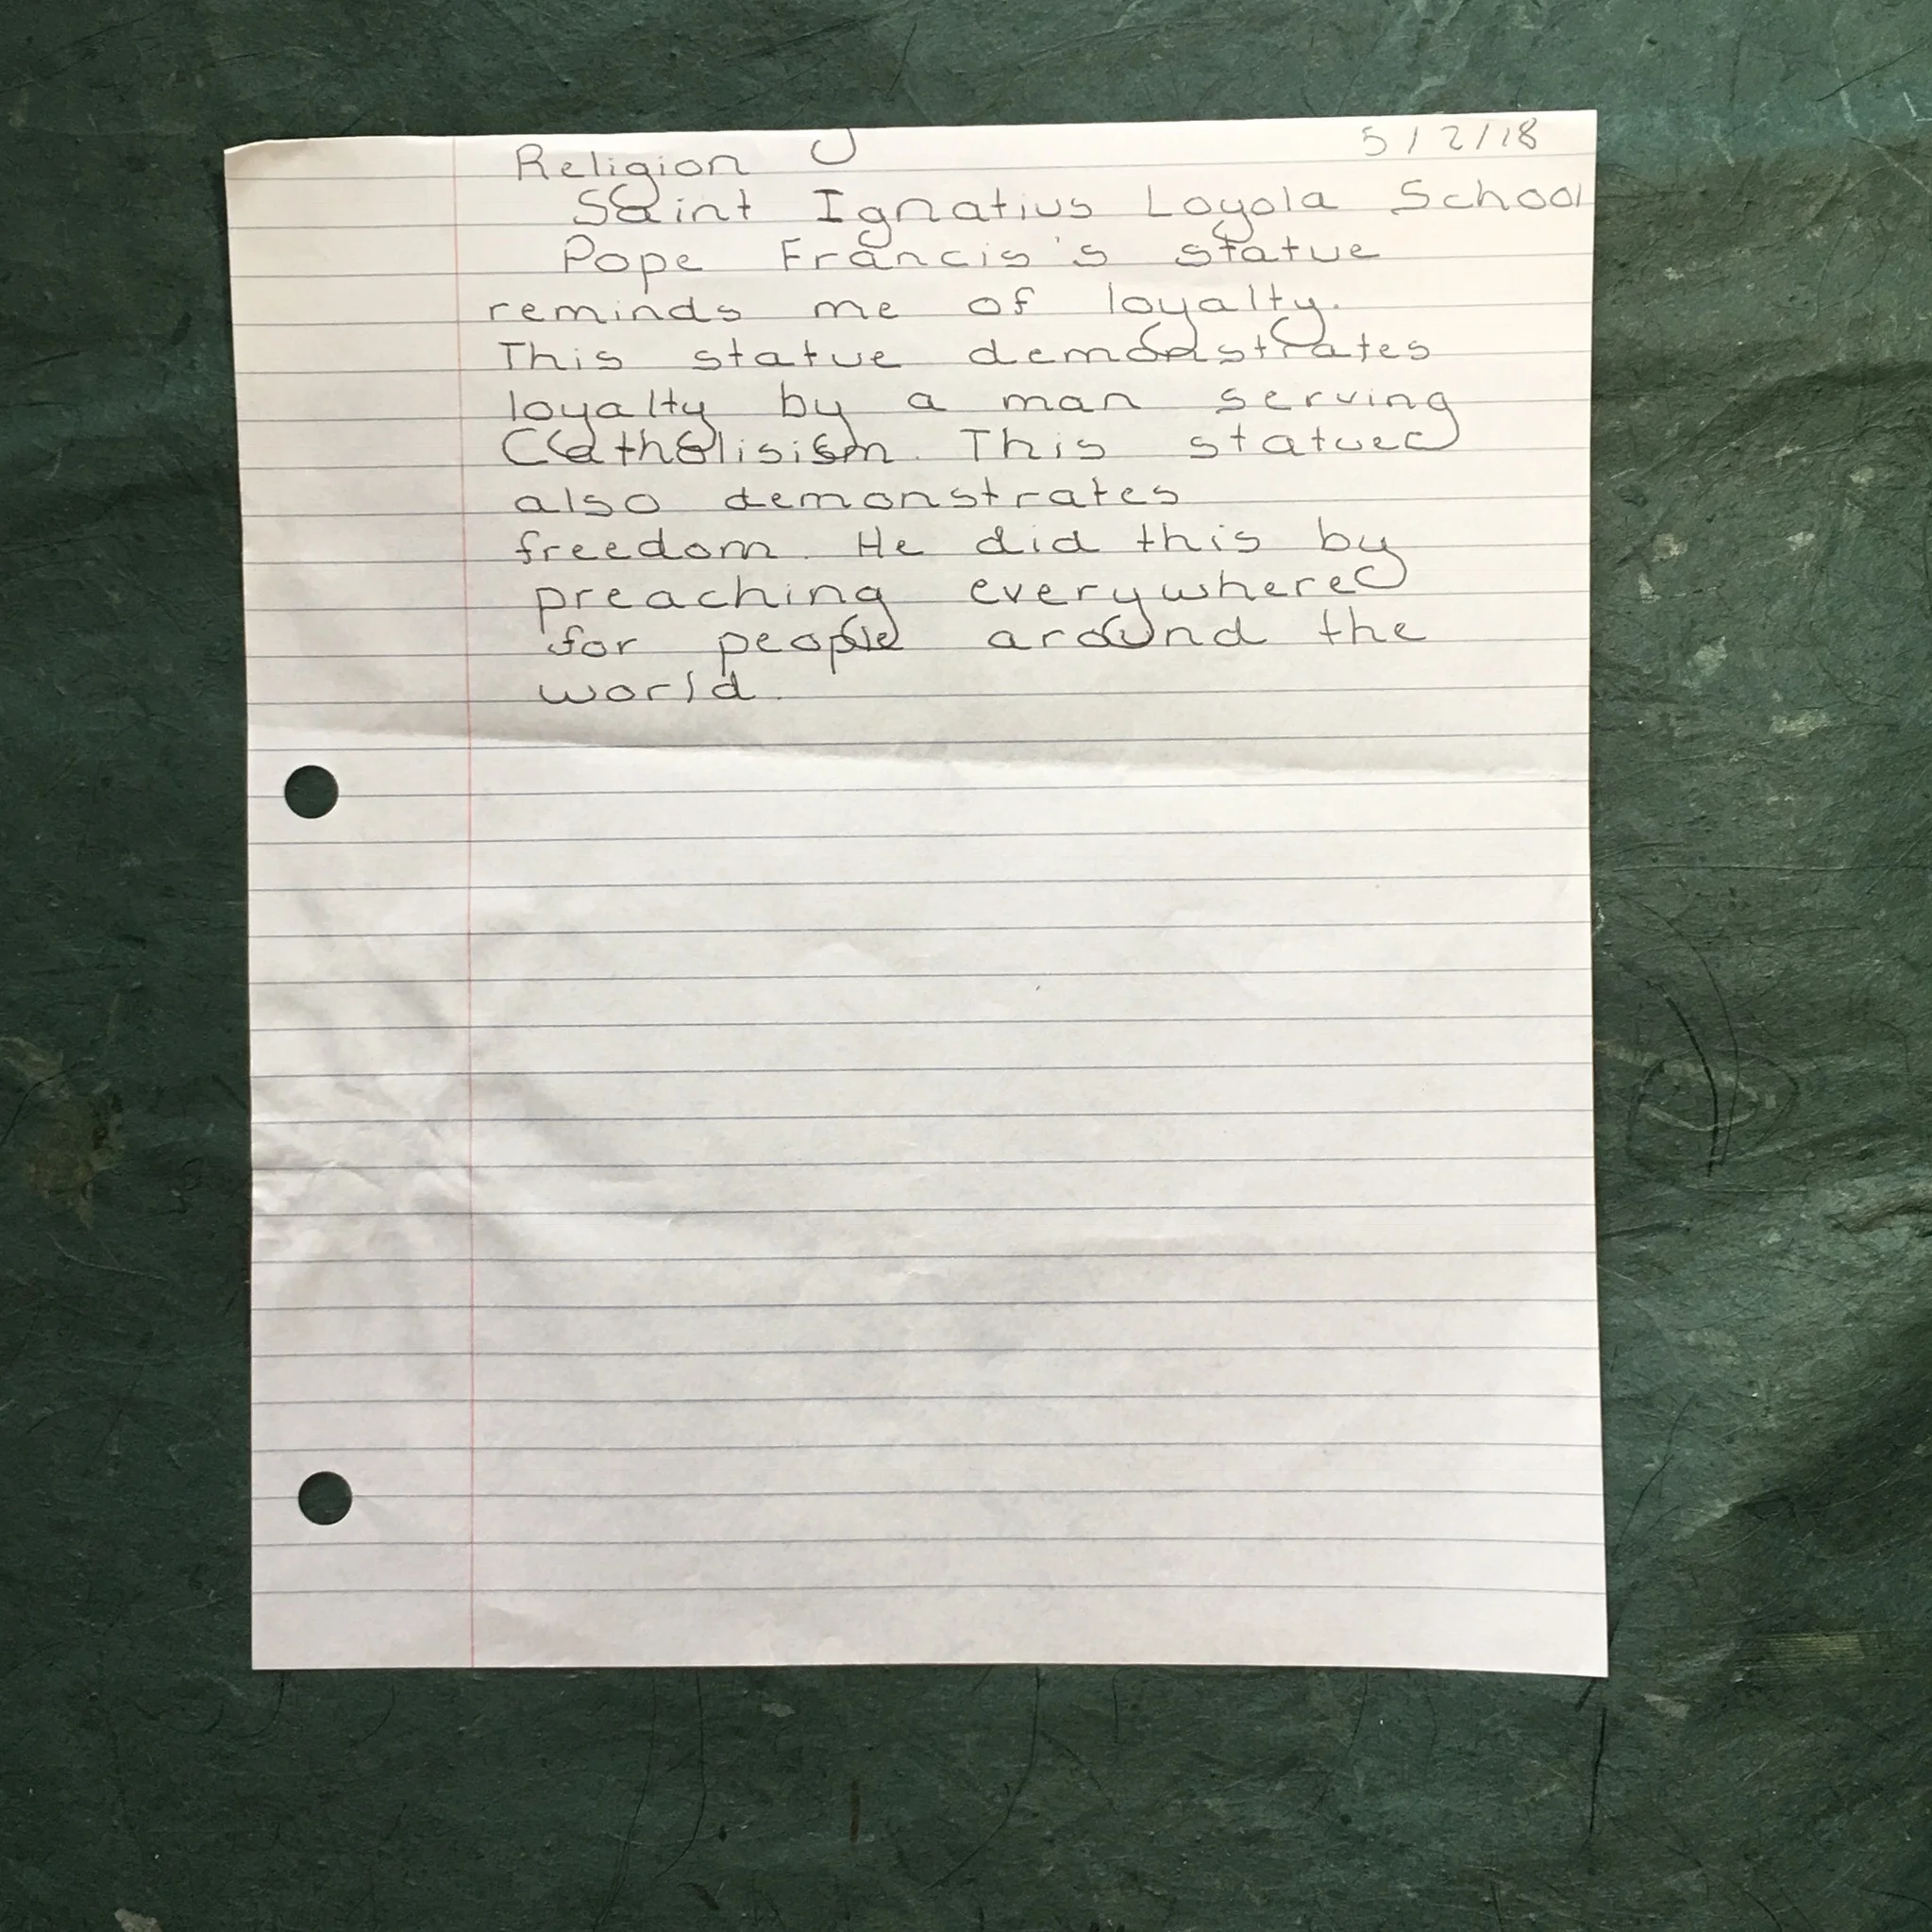 Religion 5/2/18
Saint Ignatius Loyola School
Pope Francis's statue
reminds me of loyalty.
This statue demonstrates
loyalty by a man serving
Catholisism. This statue
also demonstrates
freedom. He did this by
preaching everywhere
for people around the
world.